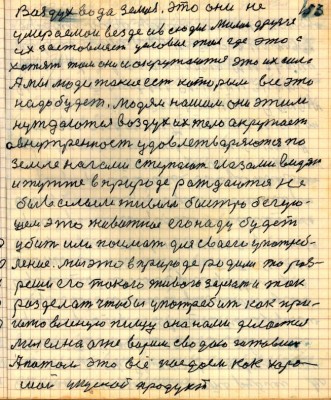 153
Воздух вода земля. Это они не
умираемой везде и всюды Милои друг
их заставляет условие там где это с
хотят там они сокружаются это их сило
А мы люди такие ест которым все это
надо будет. Людям нашим они этим
нуждаются воздух их тело окружает
а внутренност удовлетваряются по
земле нагами ступают глазами видят
и тутже в природе раждаются не
было силым живым быстро бегую-
щем это животное егонаду будет
убит или поимат для сваего употреб-
ление. мы это в природе родили то раз-
реши его такого живого зарезат и так
разделат чтобы употребит как при-
готовленую пищу она нами делается
мы ей на огне варим сводою готовим.
А патом это всё поедом как харо-
шой укусной продукт